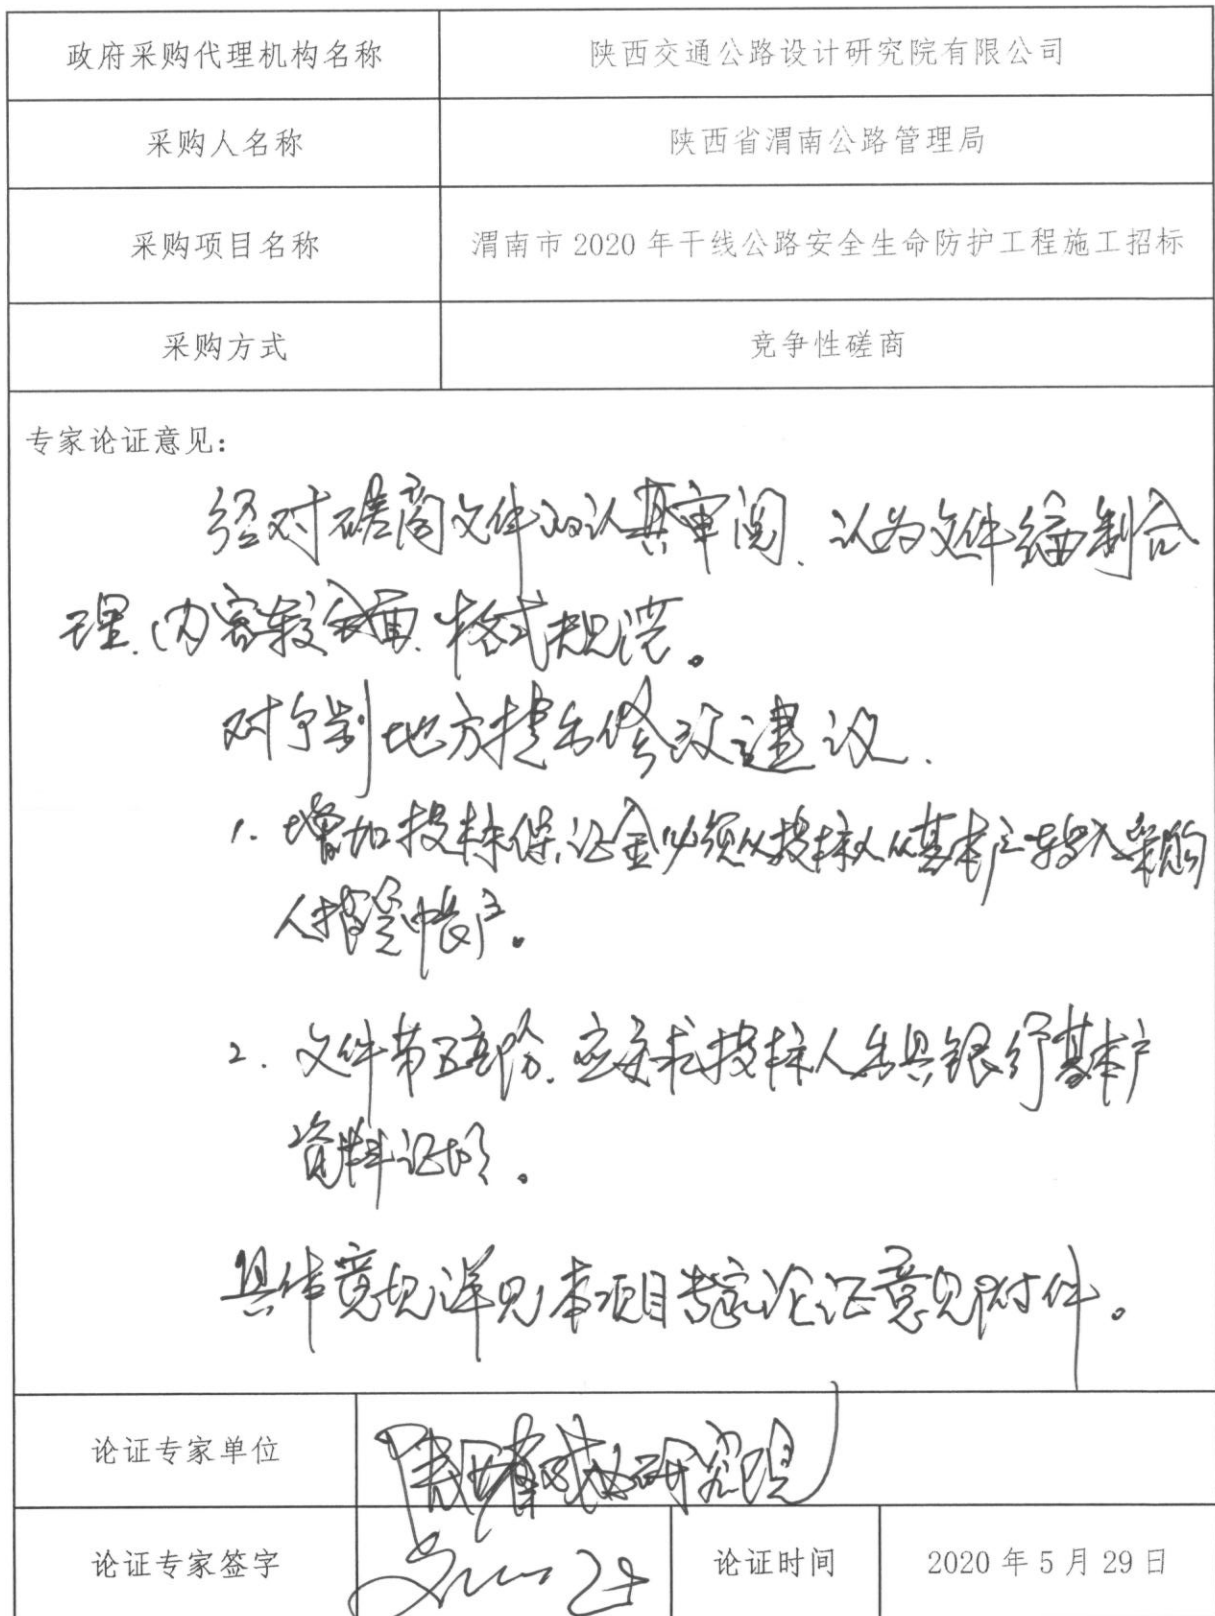 政府采购代理机构名称 陕西交通公路设计研究院有限公司
采购人名称 陕西省渭南公路管理局
采购项目名称 渭南市 2020 年干线公路安全生命防护工程施工招标
采购方式 竞争性磋商
专家论证意见：
经对磋商文件的认真审阅、认为文件编制合
理、内容较全面、格式规范。
对个别地方提出修改建议.
1. 增加投标保证金必须从投标人从基本户转入采购
人指定帐户。
2. 文件第五部份、应要求投标人出具银行基本户
资料证明。
具体意见详见本项目专家论证意见附件。
论证专家单位 陕西省 研究院
论证专家签字 论证时间 2020 年 5 月 29 日